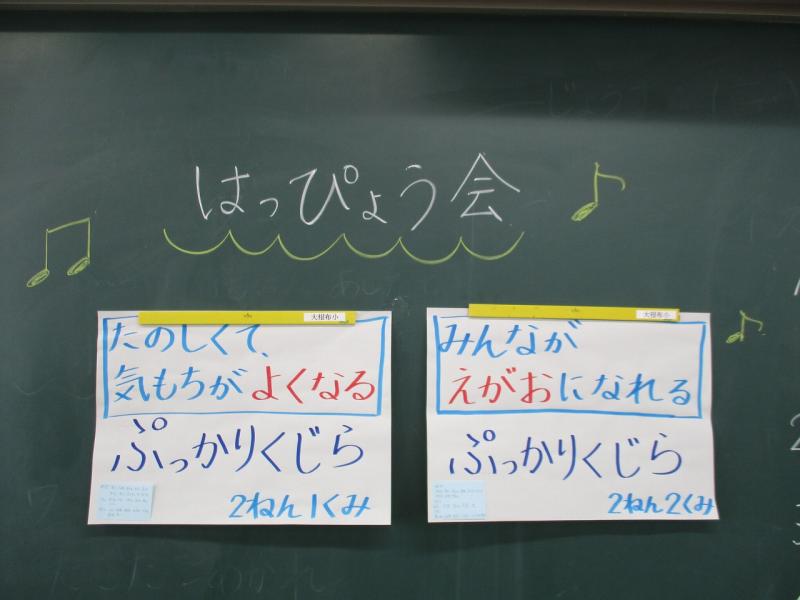 はっぴょう会
大根布小
たのしくて、
気もちがよくなる
ぷっかりくじら
2ねん1くみ
大根布小
みんなが
えがおになれる
ぷっかりくじら
2ねん2くみ